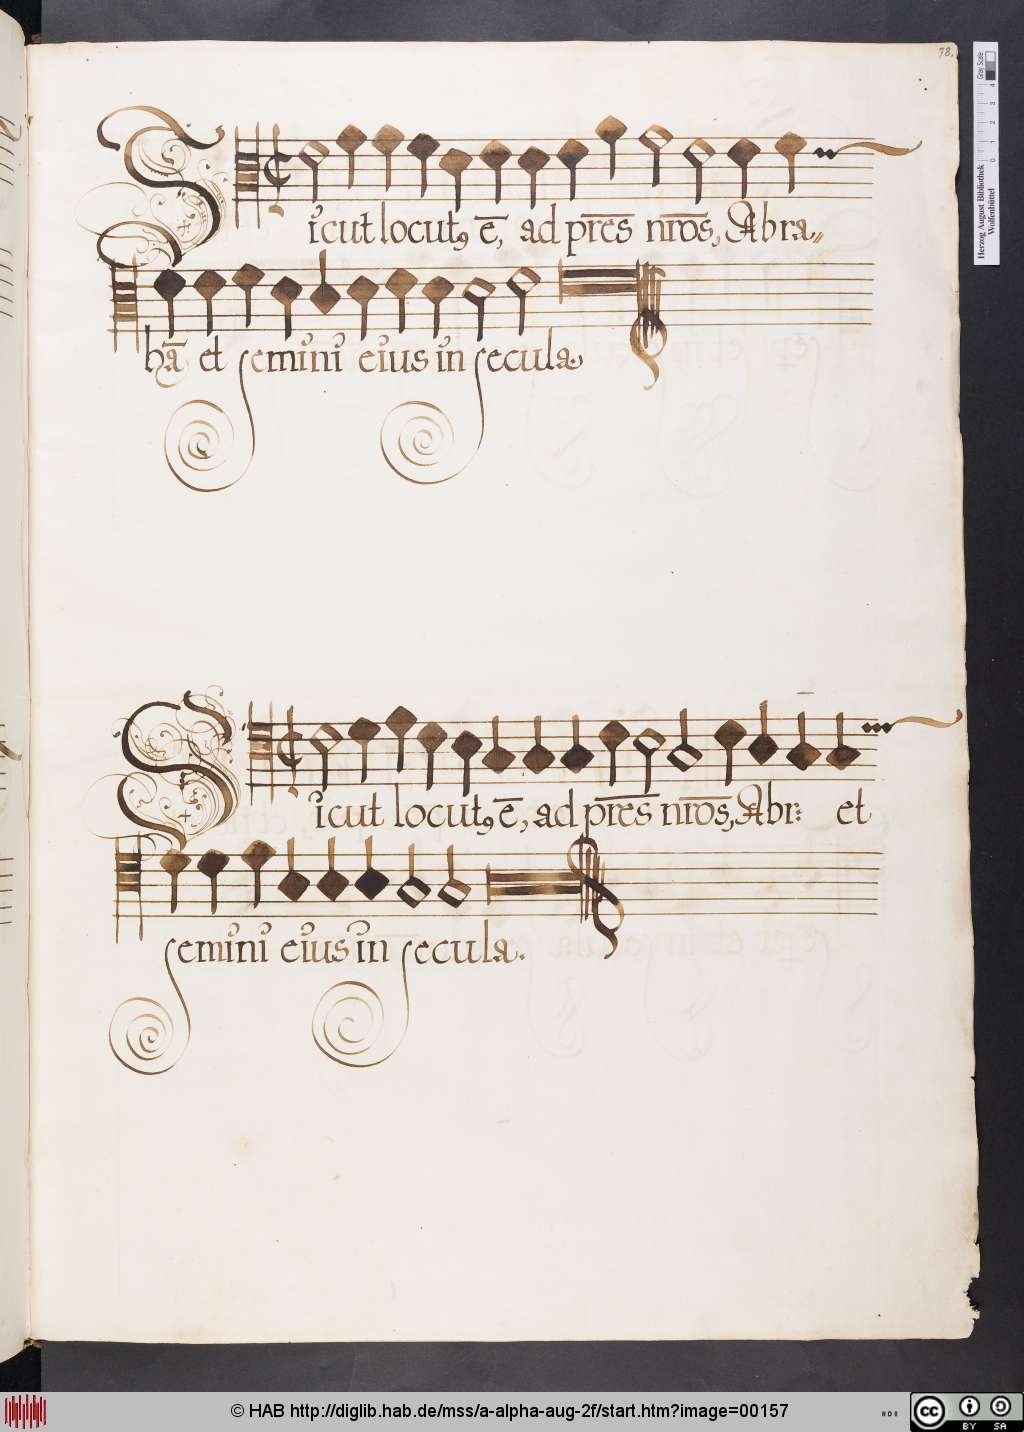 78.
Sicut locutꝰ ē, ad pr̄es nr̄os, Abra⸗
hā et semini eius in secula.
Sicut locutꝰ ē, ad pr̄es nr̄os, Abr: et
semini eius in secula.
Herzog August Bibliothek
Wolfenbüttel
0 1 2 3 4
Gray Scale
© HAB http://diglib.hab.de/mss/a-alpha-aug-2f/start.htm?image=00157
cc BY SA